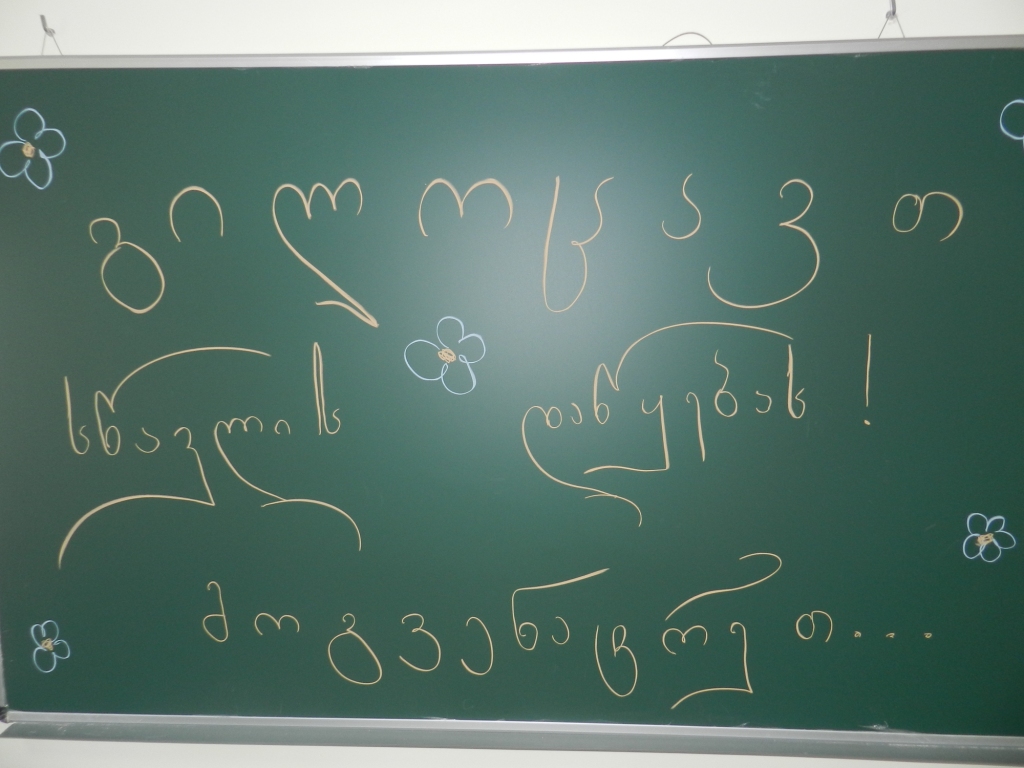 გილოცავთ
სწავლის დაწყებას!
მოგვენატრეთ...